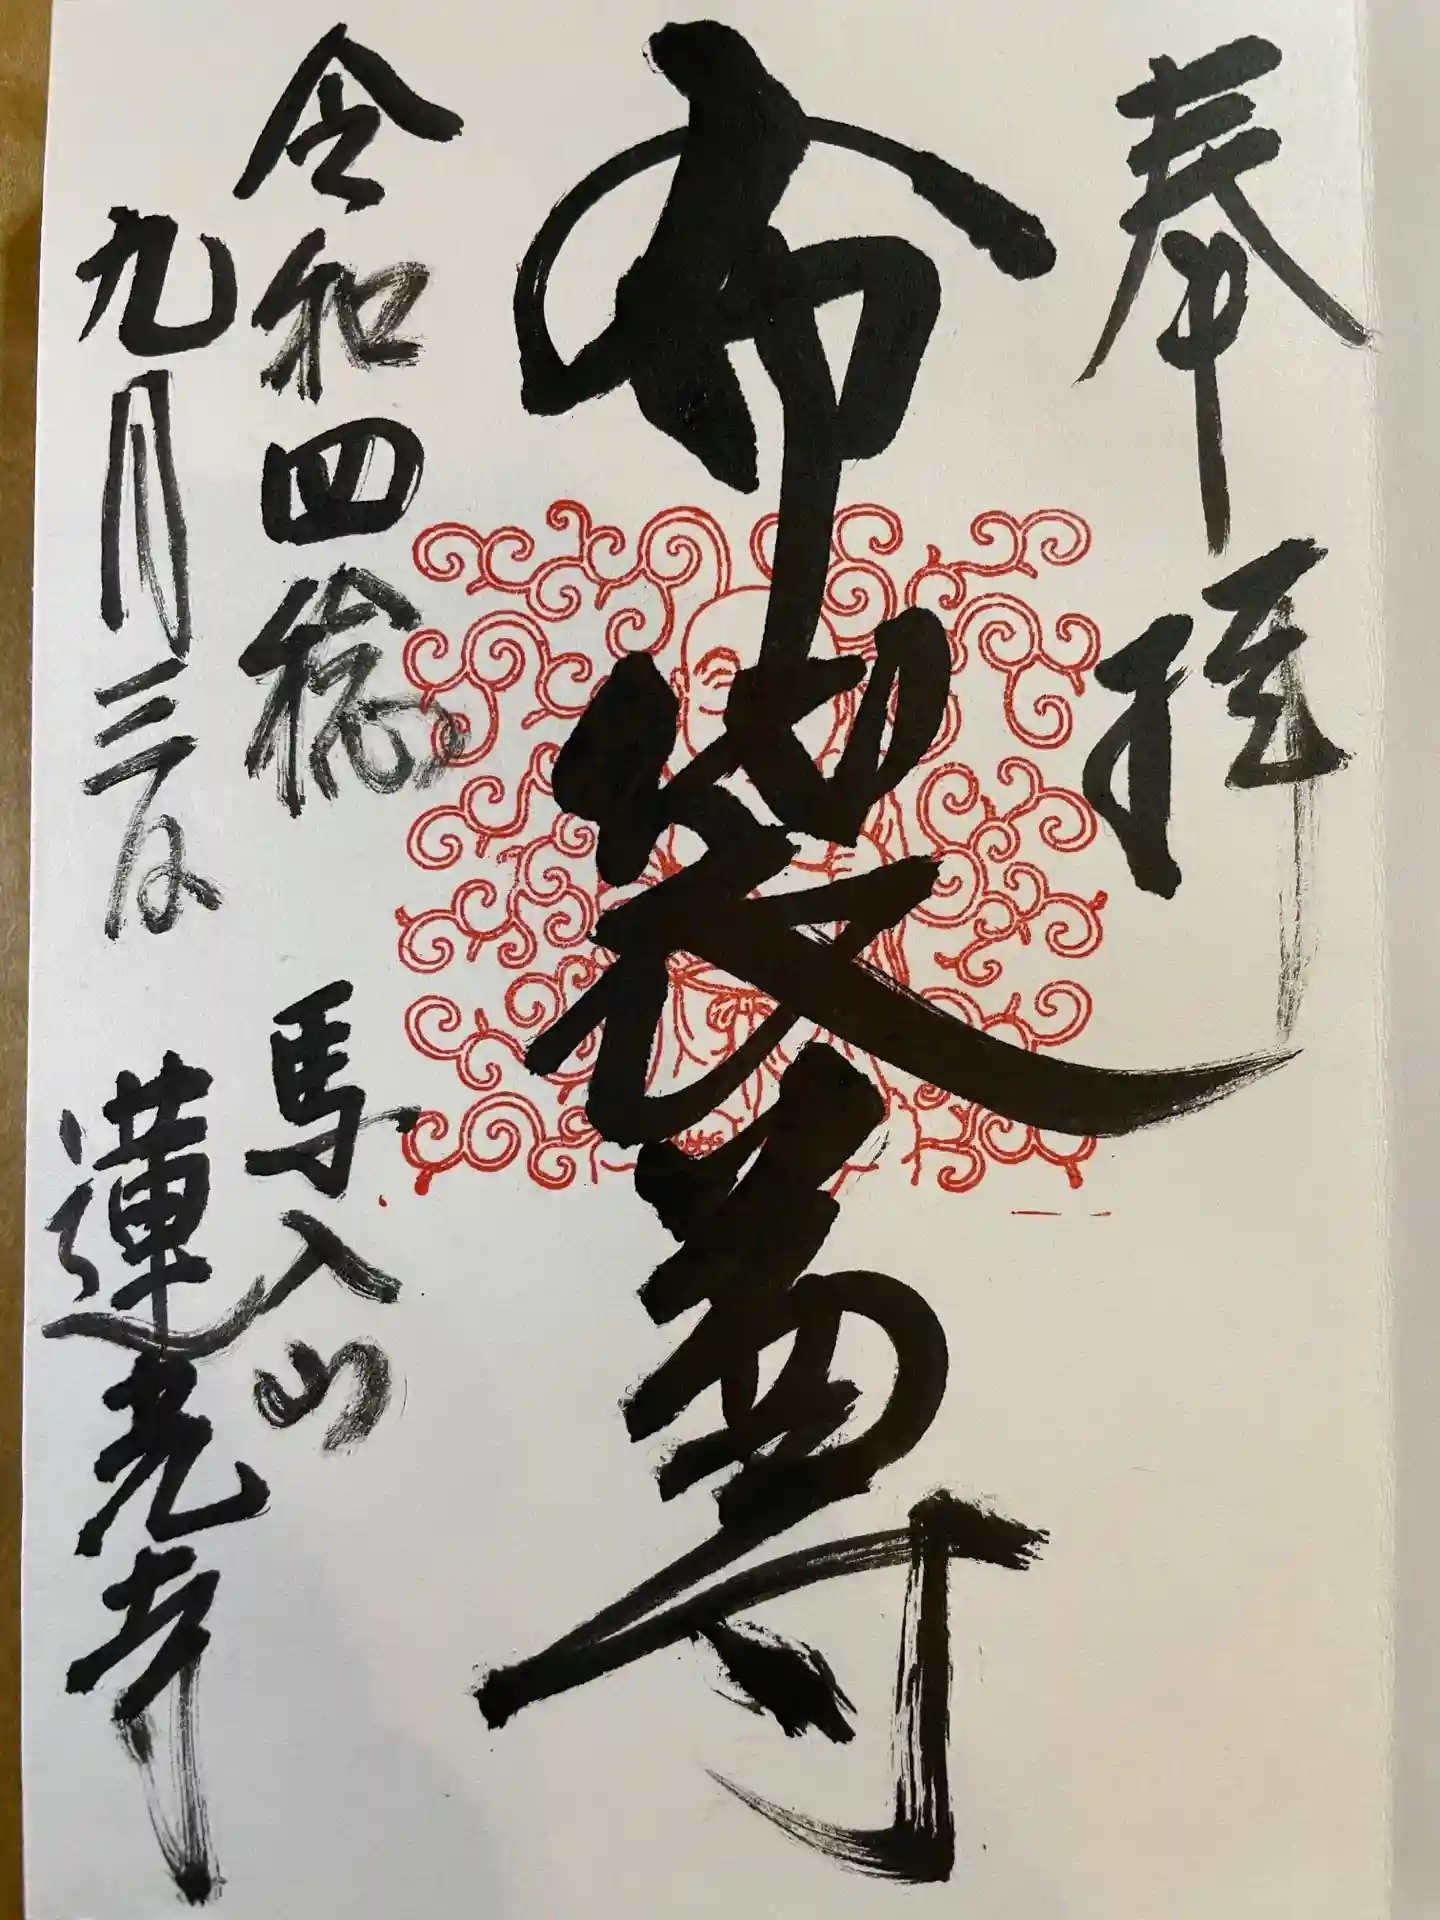 奉拝
布袋尊
令和四稔
九月三日
馬入山
蓮光寺